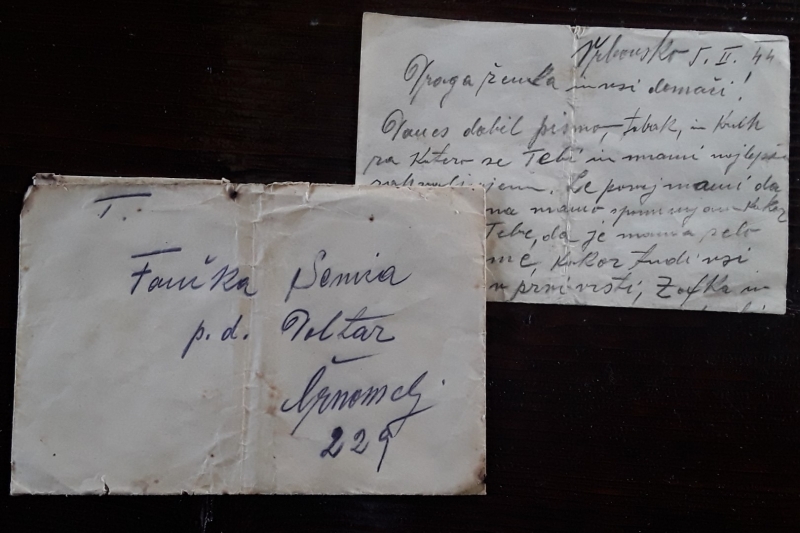 Vrbovsko 5. II. 44
Draga ženka in vsi domači!
Danes dobil pismo, tobak, in kruh
za katero se Tebi in mami najlepše
zahvaljujem. Le povej mami da
na mamo spominjam kakor
Tebe, da je mama zelo
me kakor tudi vsi
v prvi vrsti, Zofka in
T.
Fančka Semia
p.d. Doltar
Črnomelj
229